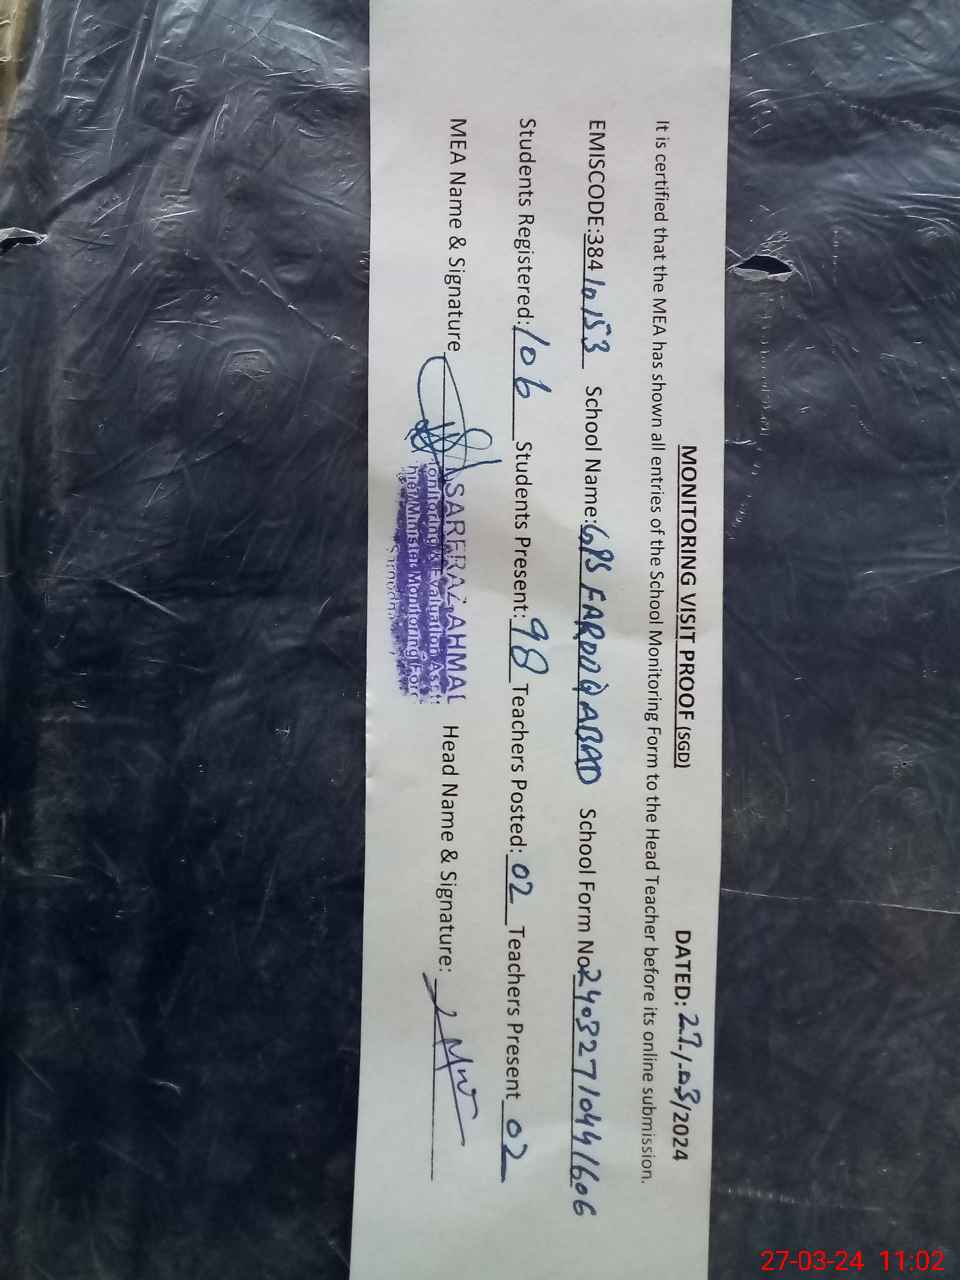 MONITORING VISIT PROOF (SGD) DATED: 27/03/2024
It is certified that the MEA has shown all entries of the School Monitoring Form to the Head Teacher before its online submission.
EMISCODE:38410153 School Name:GPS FAROOQABAD School Form No24032710441606
Students Registered:106 Students Present:98 Teachers Posted:02 Teachers Present 02
MEA Name & Signature SARFRAZ AHMAD Head Name & Signature:
Monitoring & Evaluation Asstt
Chief Minister Monitoring Force
Sargodha
27-03-24 11:02